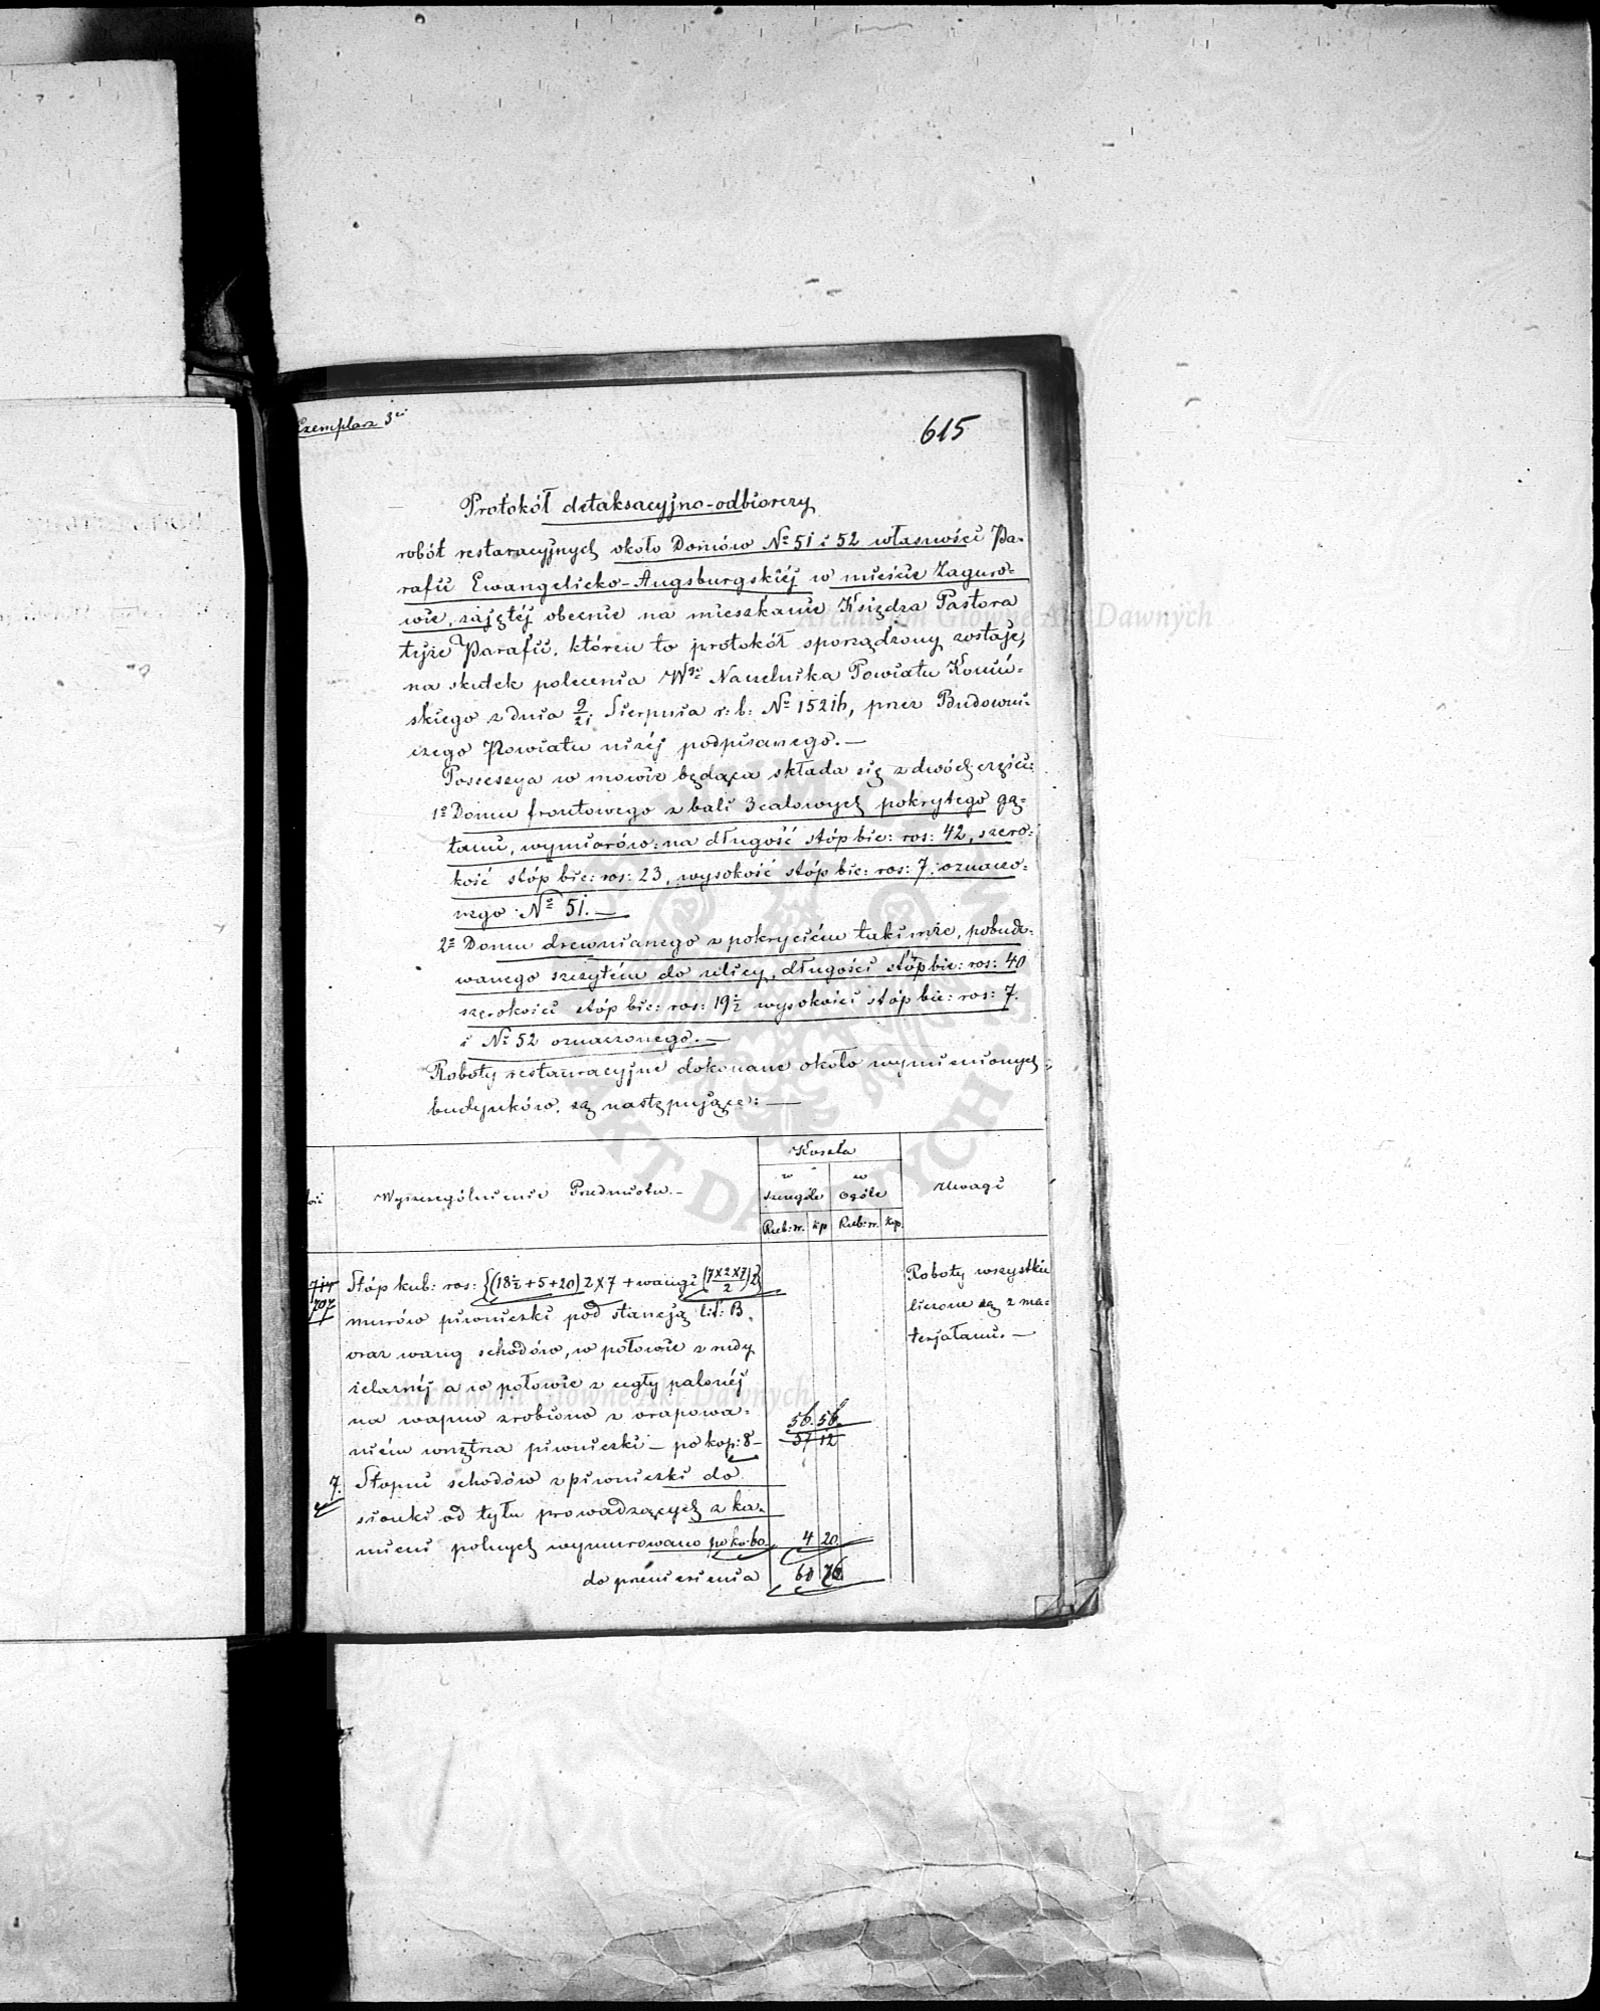 Exemplarz 3ci
615
Protokół detaksacyjno-odbiorczy
robót restauracyjnych około Domów No 51 i 52 własności Pa-
rafii Ewangelicko-Augsburgskiéj w mieście Zaguro-
wie, zajętéj obecnie na mieszkanie Księdza Pastora
tejże Parafii, któren to protokół sporządzony zostaje,
na skutek polecenia Wgo Naczelnika Powiatu Koniń-
skiego z dnia 9/21 Sierpnia r: b: No 15216, przez Budowni-
czego Powiatu niżéj podpisanego. —
Possesya w mowie będąca składa się z dwóch części:
1o Domu frontowego z bali 3calowych pokrytego gą-
tami, wymiarów: na długość stóp bie: ros: 42, szero-
kość stóp bie: ros: 23, wysokość stóp bie: ros: 7. oznaczo-
nego No 51. —
2o Domu drewnianego z pokryciém takimże, pobudo-
wanego szczytém do ulicy, długości stóp bie: ros: 40
szerokości stóp bie: ros: 19 1/2 wysokości stóp bie: ros: 7.
i No 52 oznaczonego. —
Roboty restauracyjne dokonane około wymienionych
budynków, są następujące: —
Koszta
w szczególe
w ogóle
Wyszczególnienie Przedmiotu. —
Uwagi
Rub: sr. kp. Rub: sr. kp.
714
707
Stóp kub: ros: {(18 1/2 + 5 + 20) 2 x 7 + wangi (7x2x7/2) 2}
murów piwniczki pod stancją lit: B,
oraz wang schodów, w połowie z rudy
żelaznéj a w połowie z cegły palonéj
na wapno zrobiono z orapowa-
niém wnętrza piwniczki — po kop: 8 —
56. 56.
57 12
7. Stopni schodów z piwniczki do
sionki od tyłu prowadzących z ka-
mieni polnych wymurowano po ko: 60
4 20
do przeniesienia
60 76
Roboty wszystkie
liczone są z ma-
terjałami. —
Archiwum Główne Akt Dawnych
Archiwum Główne Akt Dawnych
AKT DAWNYCH